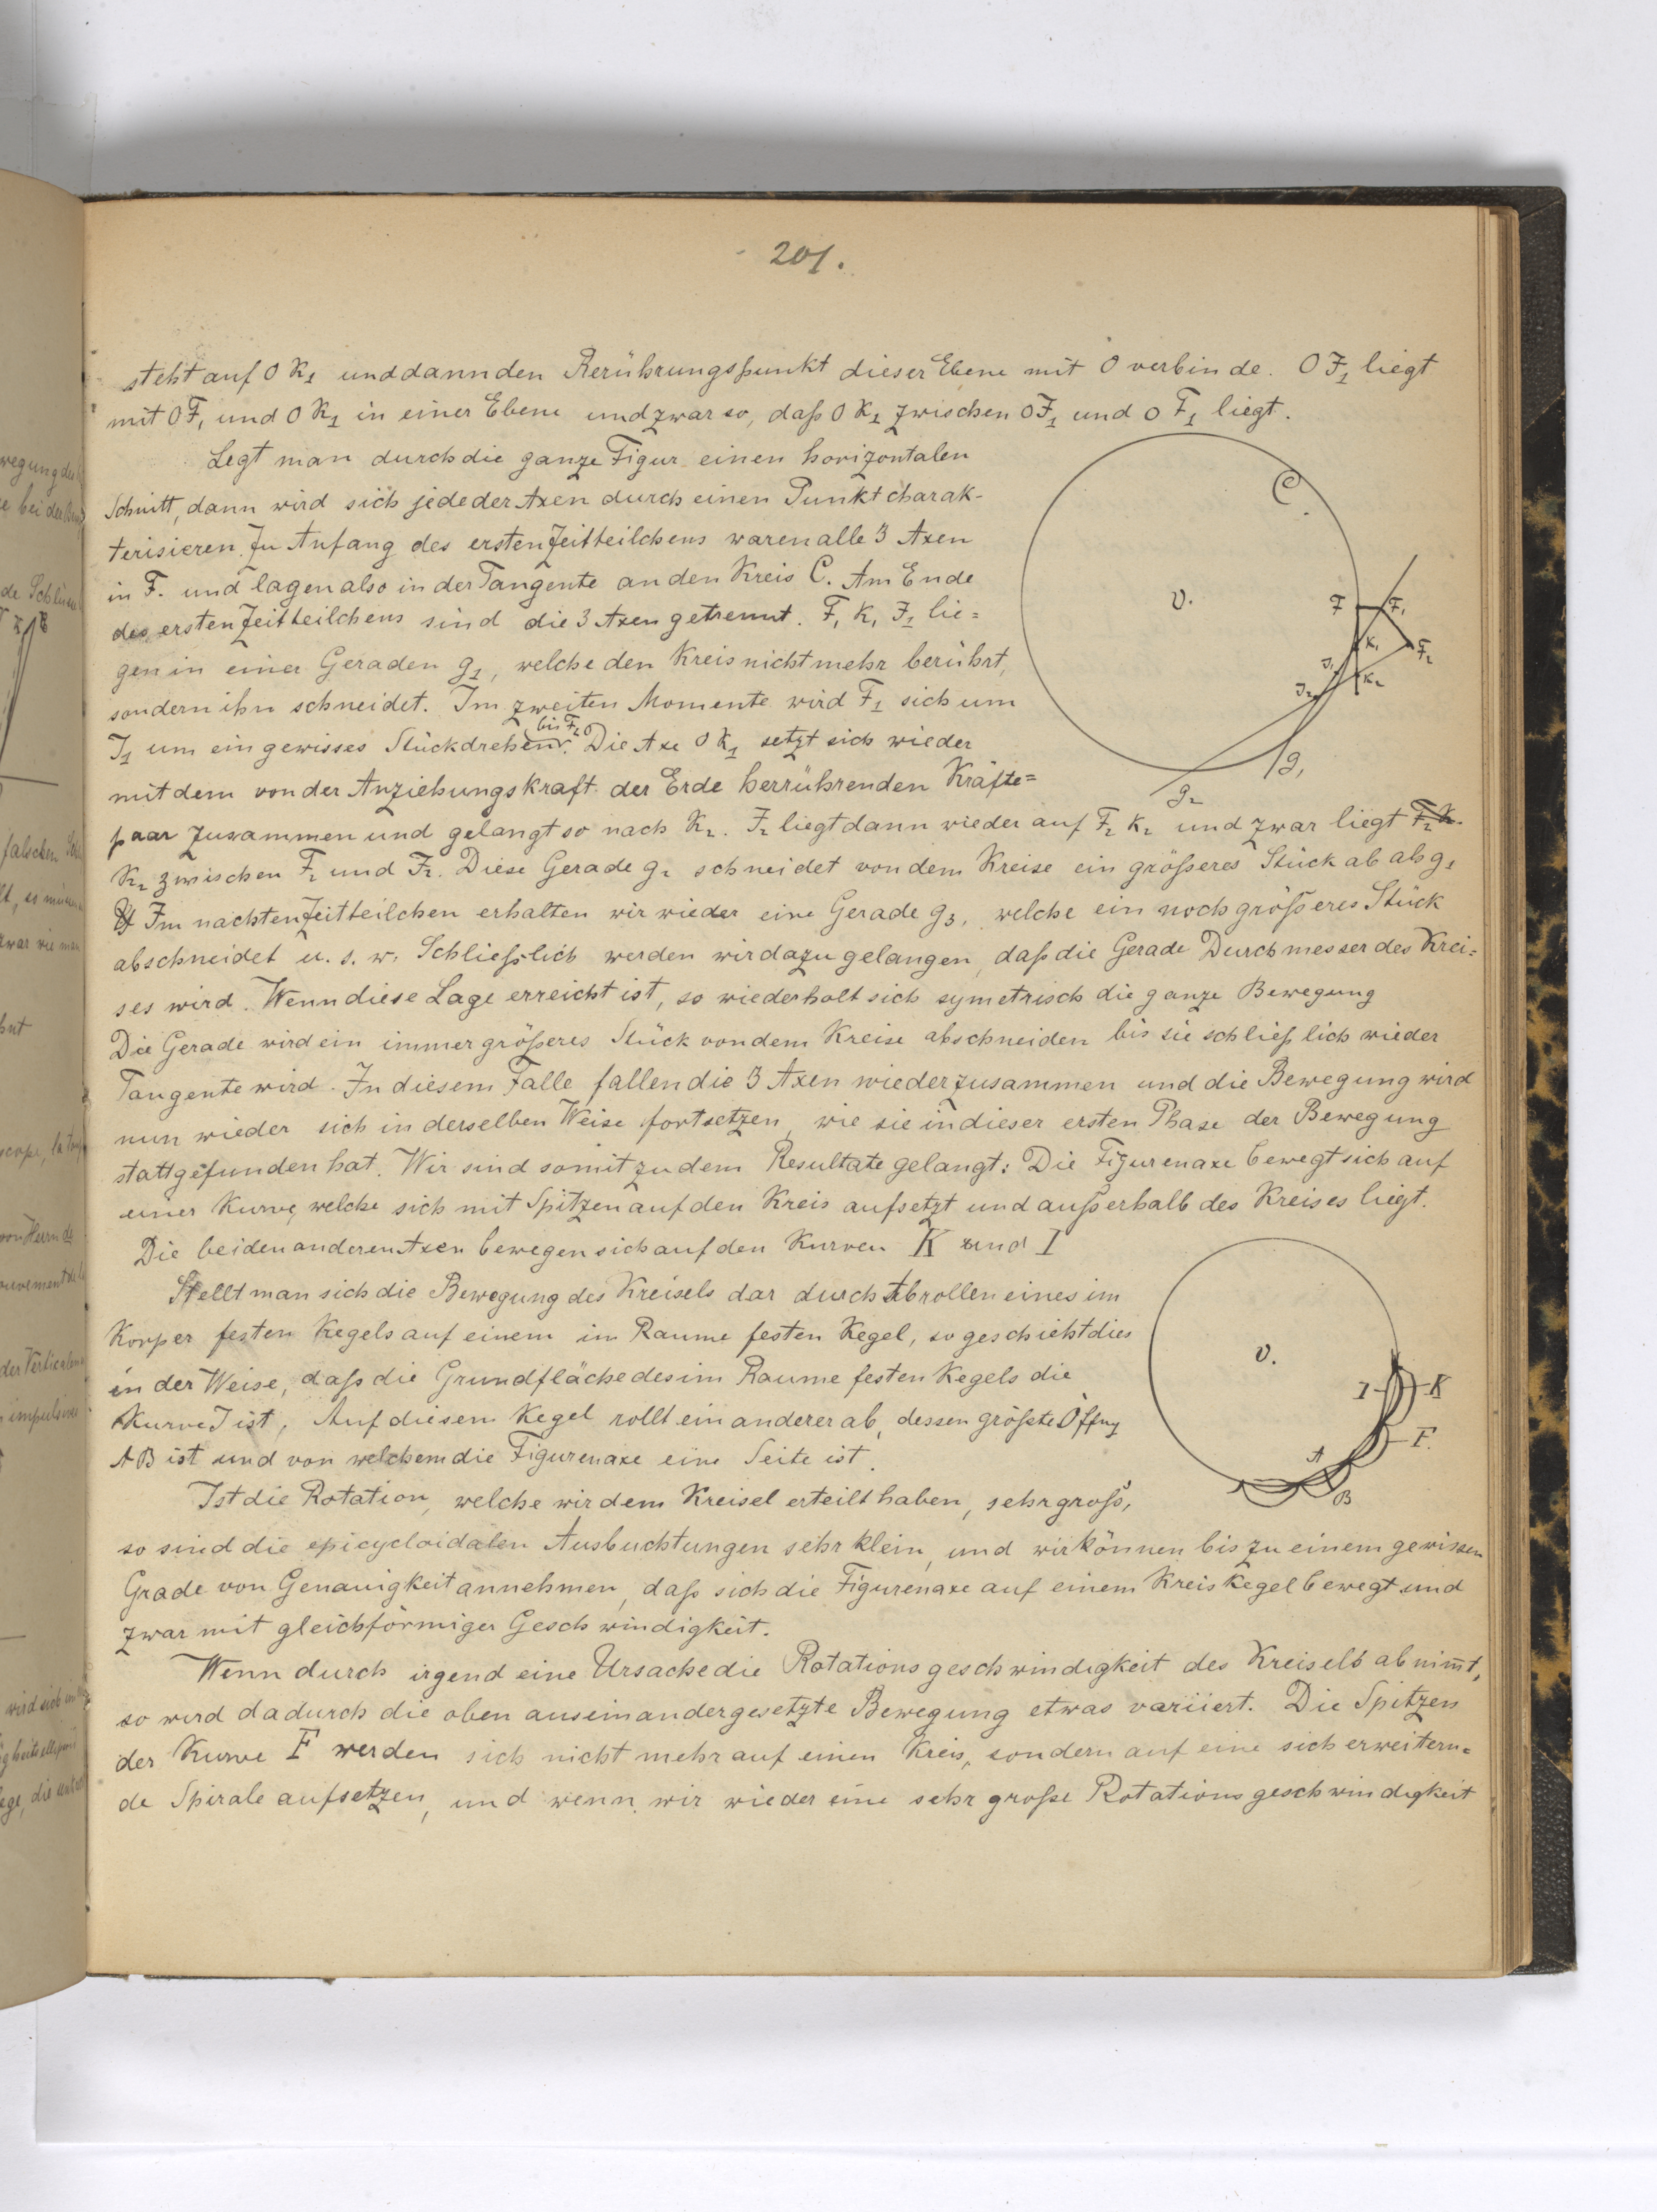 201.
steht auf O K1 und dann den Berührungspunkt dieser Ebene mit O verbinde. O J1 liegt
mit O F1 und O K1 in einer Ebene und zwar so, daß O K1 zwischen O J1 und O F1 liegt.
Legt man durch die ganze Figur einen horizontalen
Schnitt, dann wird sich jede der Axen durch einen Punkt charak-
terisieren. Zu Anfang des ersten Zeitteilchens waren alle 3 Axen
in F. und lagen also in der Tangente an den Kreis C. Am Ende
des ersten Zeitteilchens sind die 3 Axen getrennt. F1 K1 J1 lie=
gen in einer Geraden g1, welche den Kreis nicht mehr berührt,
sondern ihn schneidet. Im zweiten Momente wird F1 sich um
bis F2
J1 um ein gewisses Stück drehen. Die Axe O K1 setzt sich wieder
mit dem von der Anziehungskraft der Erde herrührenden Kräfte=
paar zusammen und gelangt so nach K2. J2 liegt dann wieder auf F2 K2 und zwar liegt
K2 zwischen F2 und J2. Diese Gerade g2 schneidet von dem Kreise ein größeres Stück ab als g1
Im nachten Zeitteilchen erhalten wir wieder eine Gerade g3, welche ein noch größeres Stück
abschneidet u. s. w. Schließlich werden wir dazu gelangen, daß die Gerade Durchmesser des Krei=
ses wird. Wenn diese Lage erreicht ist, so wiederholt sich symetrisch die ganze Bewegung
Die Gerade wird ein immer größeres Stück von dem Kreise abschneiden bis sie schließlich wieder
Tangente wird. In diesem Falle fallen die 3 Axen wieder zusammen und die Bewegung wird
nun wieder sich in derselben Weise fortsetzen, wie sie in dieser ersten Phase der Bewegung
stattgefunden hat. Wir sind somit zu dem Resultate gelangt: Die Figurenaxe bewegt sich auf
einer Kurve, welche sich mit Spitzen auf den Kreis aufsetzt und außerhalb des Kreises liegt.
Die beiden anderen Axen bewegen sich auf den Kurven K und I
Stellt man sich die Bewegung des Kreisels dar durch Abrollen eines im
Korper festen Kegels auf einem im Raume festen Kegel, so geschieht dies
in der Weise, daß die Grundfläche des im Raume festen Kegels die
Kurve J ist, Auf diesem Kegel rollt ein anderer ab, dessen größte Öffng
AB ist und von welchem die Figurenaxe eine Seite ist.
Ist die Rotation, welche wir dem Kreisel erteilt haben, sehr groß,
so sind die epicycloidalen Ausbuchtungen sehr klein, und wir können bis zu einem gewissen
Grade von Genauigkeit annehmen, daß sich die Figurenaxe auf einem Kreiskegel bewegt und
zwar mit gleichförmiger Geschwindigkeit.
Wenn durch irgend eine Ursache die Rotationsgeschwindigkeit des Kreisels abnim̅t,
so wird dadurch die oben auseinandergesetzte Bewegung etwas variiert. Die Spitzen
der Kurve F werden sich nicht mehr auf einen Kreis, sondern auf eine sich erweitern=
de Spirale aufsetzen, und wenn wir wieder eine sehr große Rotationsgeschwindigkeit
C
O.
F
F1
K1
F2
J1
K2
J2
g1
g2
O.
I
K
F.
A
B